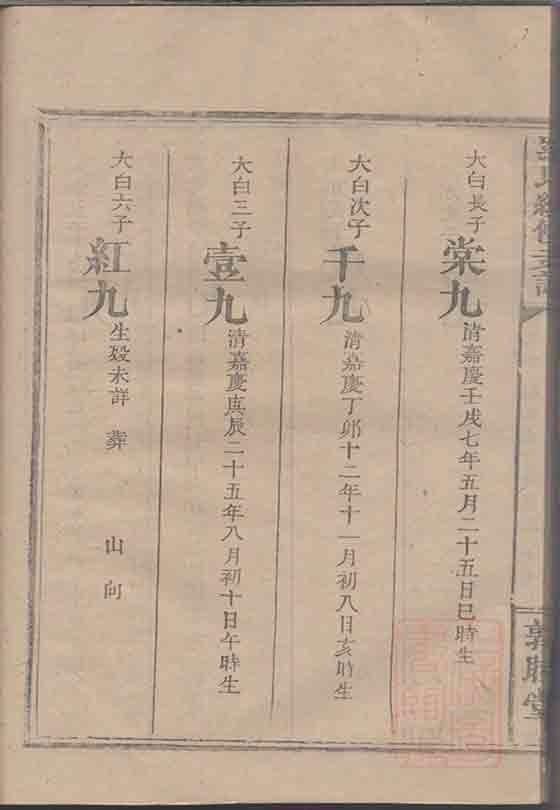 大白長子 棠九 清嘉慶壬戌七年五月二十五日巳時生
大白次子 千九 清嘉慶丁卯十二年十一月初八日亥時生
大白三子 壹九 清嘉慶庚辰二十五年八月初十日午時生
大白六子 紅九 生歿未詳 葬 山向